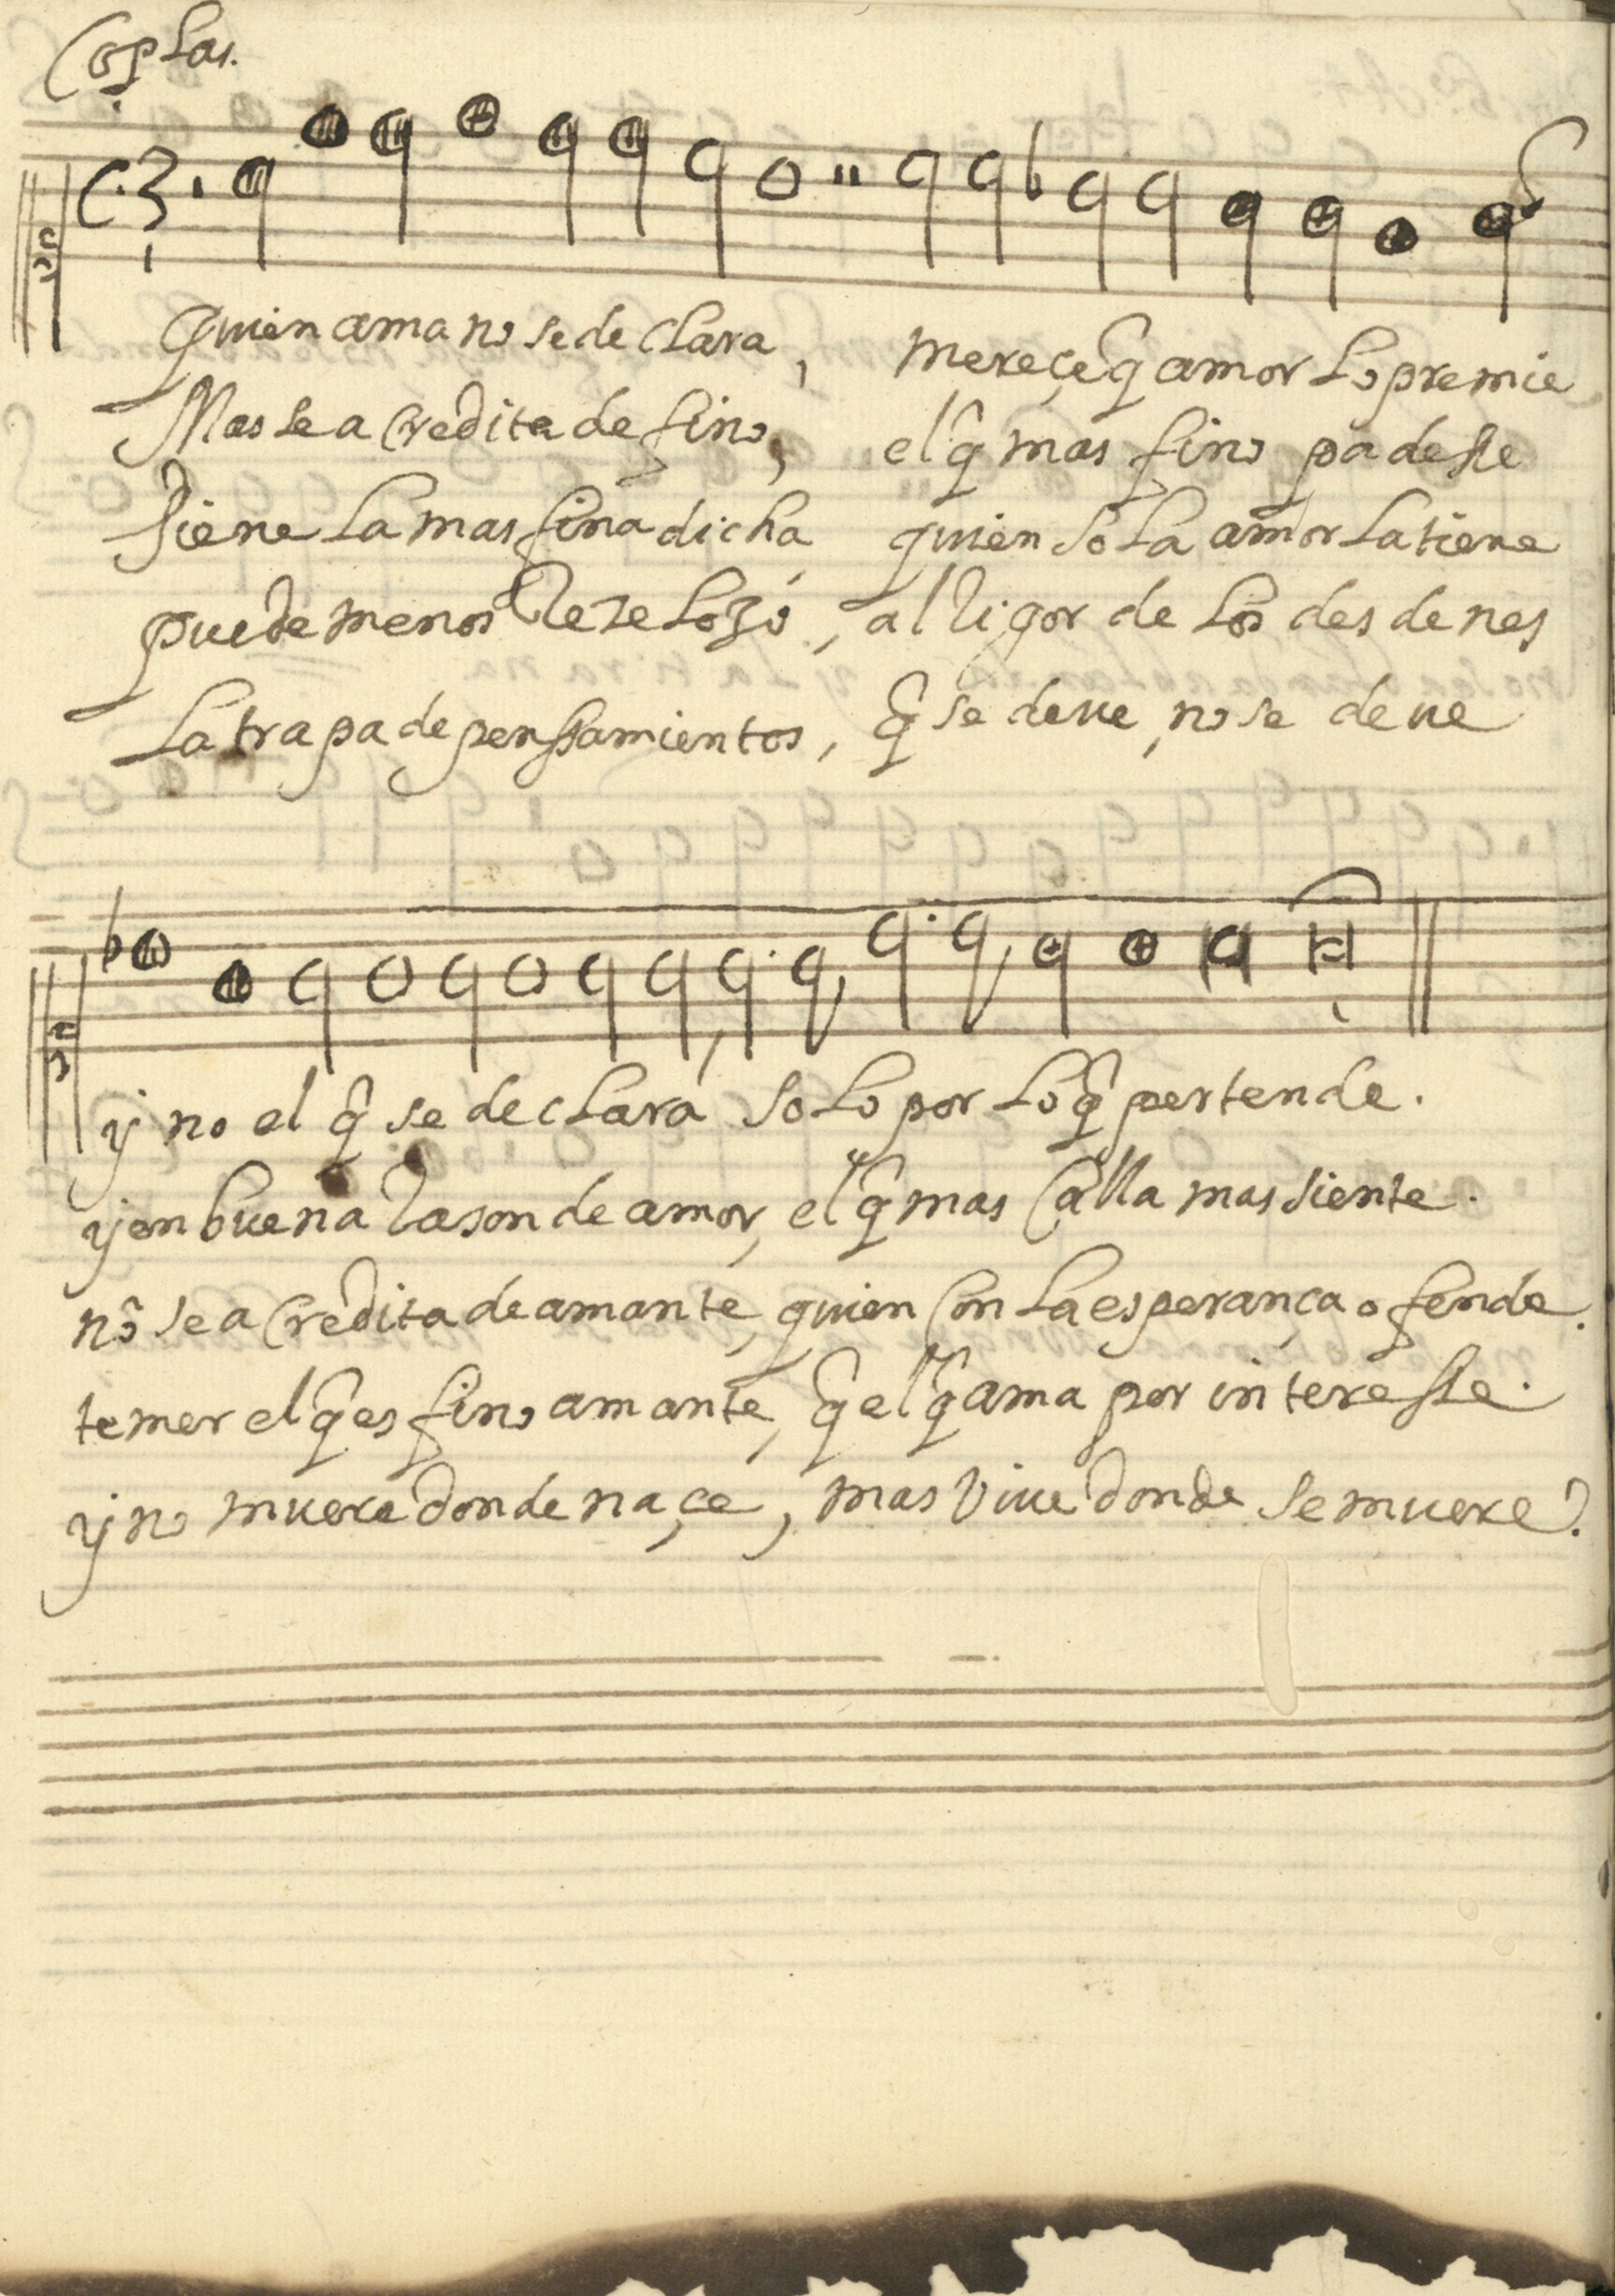 Coplas.
quien ama no se declara, mereçe q̃ amor lo premie
Mas se acredita de fino, el q̃ mas fino padesse
tiene la mas fina dicha quien solo la amor la tiene
puede menos Rezelozo, al Rigor de los desdenes
la trapa de penssamientos, q̃ se deue, no se deue
y no el q̃ se declara solo por lo q̃ pertende.
y en buena Rason de amor, el q̃ mas calla mas siente.
nõ se acredita de amante, quien con la esperança ofende.
temer el q̃ es fino amante, q̃ el q̃ ama por interesse.
y no muere donde naçe, mas viue donde se muere.